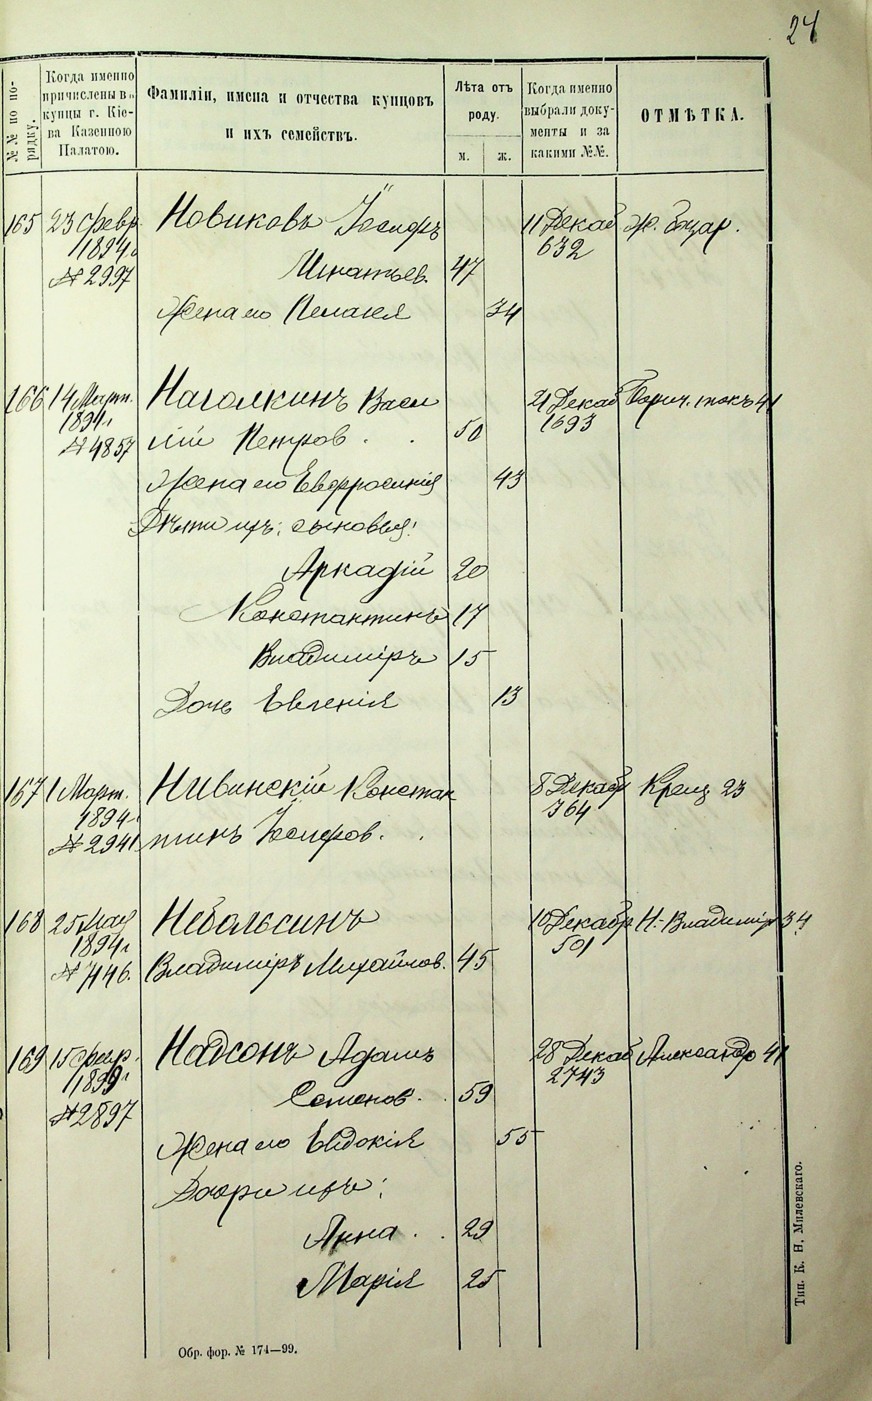 24
№№ по по-
рядку.
Когда именно
причислены въ
купцы г. Кіе-
ва Казенною
Палатою.
Фамиліи, имена и отчества купцовъ
и ихъ семействъ.
Лѣта отъ
роду.
м. ж.
Когда именно
выбрали доку-
менты и за
какими №№.
ОТМѢТКА.
165 23 февр. Новиковъ Іосифъ 11 Декаб Ж. базар.
1894 632
№ 2997 Игнатьев. 47
Жена его Пелагея 34
166 14 Март. Наголкинъ Васи 21 Декаб Борич. токъ 41
1894 г 1693
№ 4857 лій Петров. 50
Жена его Евфросинія 43
Дѣти ихъ: сыновья:
Аркадій 20
Константинъ 17
Владиміръ 15
Дочь Евгенія 13
167 1 Март. Нивинскій Констан 8 Декабр Крещ 23
1894 г 364
№ 2941 тинъ Іосифов.
168 25 Мая Небольсинъ 10 Декабр Н.-Владимір 34
1894 г 501
№ 7146. Владиміръ Михайлов. 45
169 15 февр. Надсонъ Адамъ 28 Декаб Александр 41
1899 г 2743
№ 2897 Семенов. 59
Жена его Евдокія 55
Дочери ихъ:
Анна 29
Марія 25
Обр. фор. № 174—99.
Тип. К. Н. Милевскаго.